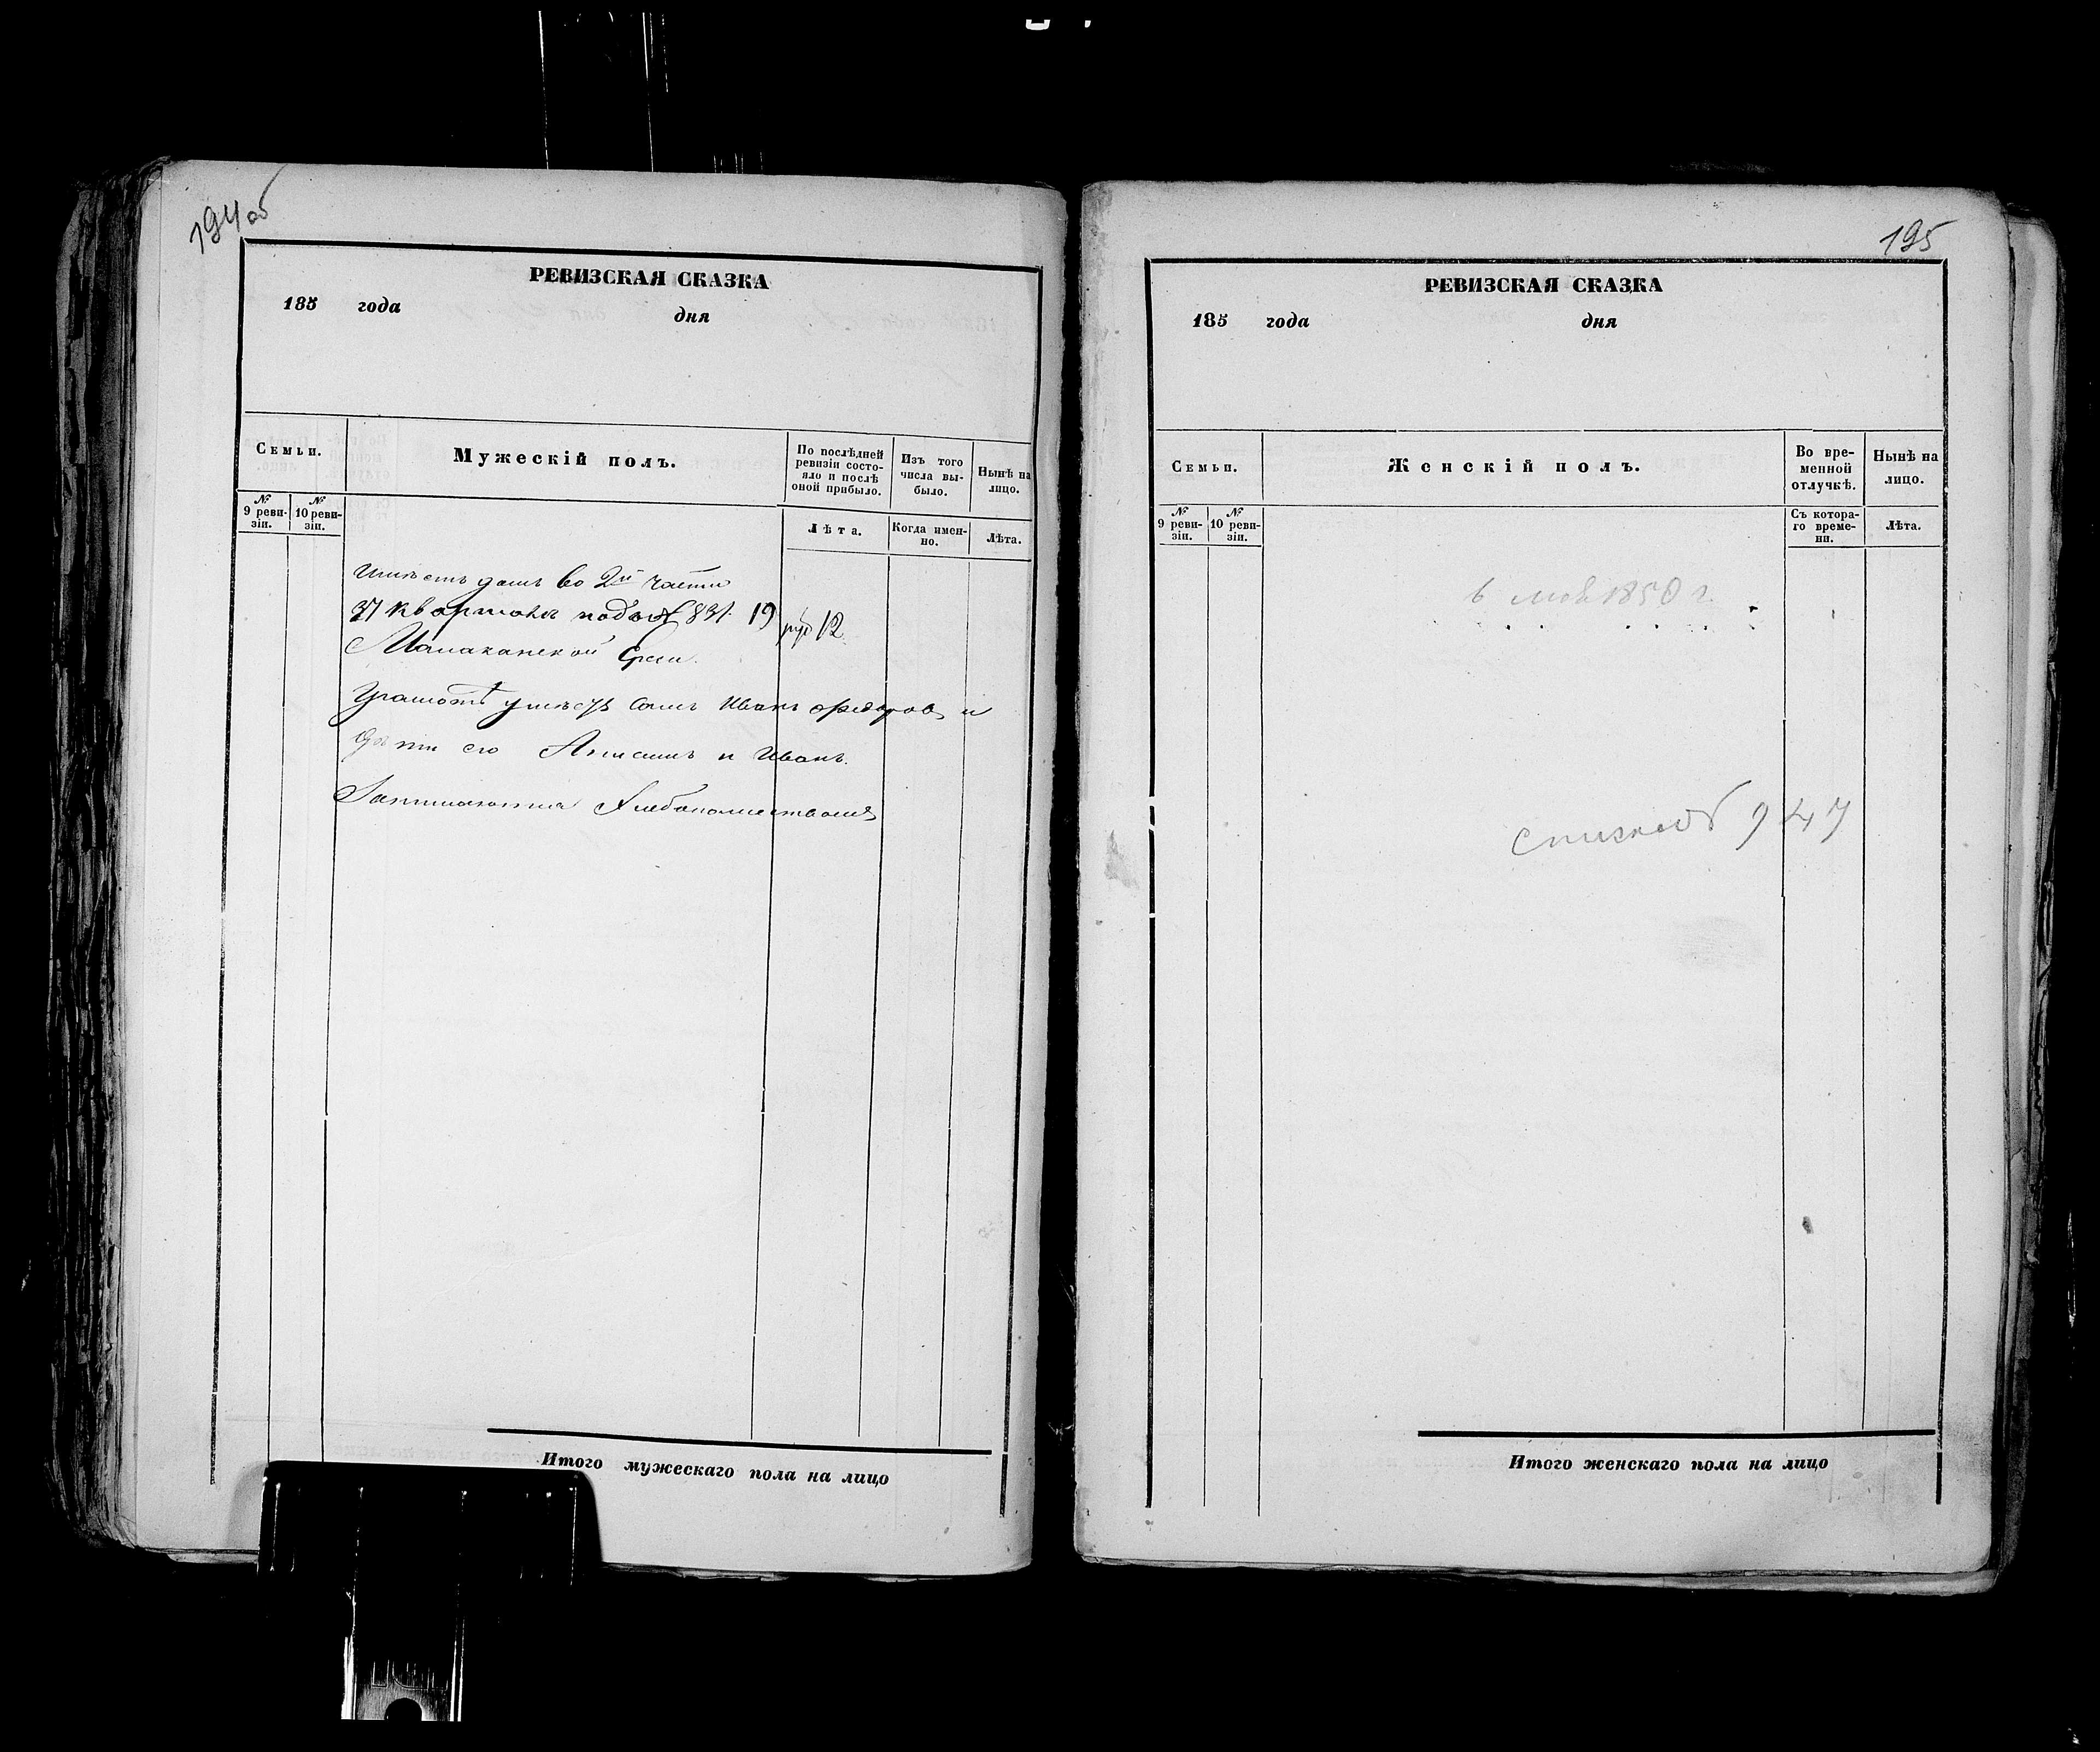 194 об
РЕВИЗСКАЯ СКАЗКА
185 года дня
Семьи.
Мужескій полъ.
По послѣдней ревизіи состо-
яло и послѣ
оной прибыло.
Изъ того
числа вы-
было.
Нынѣ на
лицо.
№
9 реви-
зіи.
№
10 реви-
зіи.
Лѣта.
Когда имен-
но.
Лѣта.
Имѣетъ домъ во 2й части
37 кварталѣ подъ № 831. 19 руб 12
Малаканской Ереси.
Грамотѣ умѣютъ самъ Иванъ Федоровъ и
Дѣти его Анисимъ и Иванъ.
Занимаются Хлебопашествомъ
Итого мужескаго пола на лицо
195
РЕВИЗСКАЯ СКАЗКА
185 года дня
Семьи.
Женскій полъ.
Во вре-
менной
отлучкѣ.
Нынѣ на
лицо.
№
9 реви-
зіи.
№
10 реви-
зіи.
Съ котора-
го време-
ни.
Лѣта.
6 мая 1850 г.
947
Итого женскаго пола на лицо